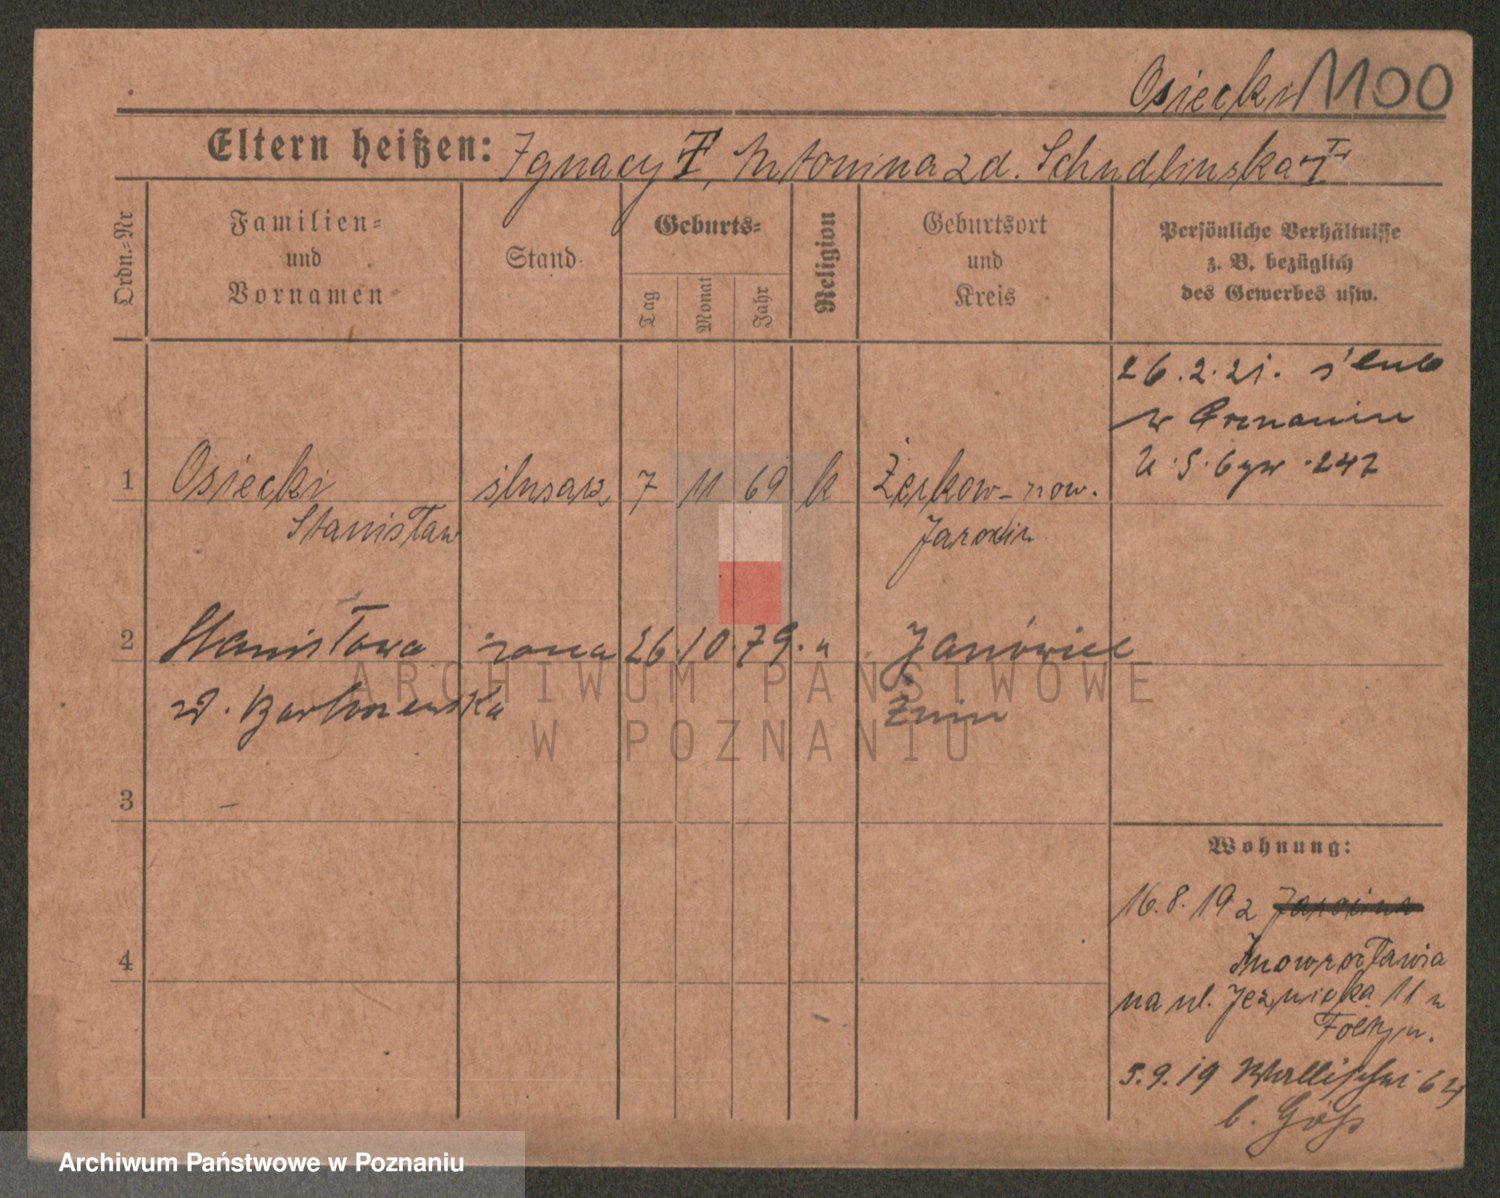 Osiecki 1100
Eltern heißen: Ignacy †, Antonina zd. Schudlinska †
Ordn.=Nr
Familien=
und
Vornamen
Stand
Geburts=
Tag
Monat
Jahr
Religion
Geburtsort
und
Kreis
Persönliche Verhältnisse
z. B. bezüglich
des Gewerbes usw.
26.2.21. ślub
w Poznaniu
U.S.
247
1 Osiecki ślusarz 7 11 69 k Żerkow - pow.
Stanisław Jarocin
2 Stanisława żona 26.10.79. " Janówiec
Żnin
ARCHIWUM PAŃSTWOWE
W POZNANIU
3
4
Wohnung:
16.8.19 z Jarocina
Inowrocławia
na ul. 11 u
5.9.19 Wallischei
b.
Archiwum Państwowe w Poznaniu